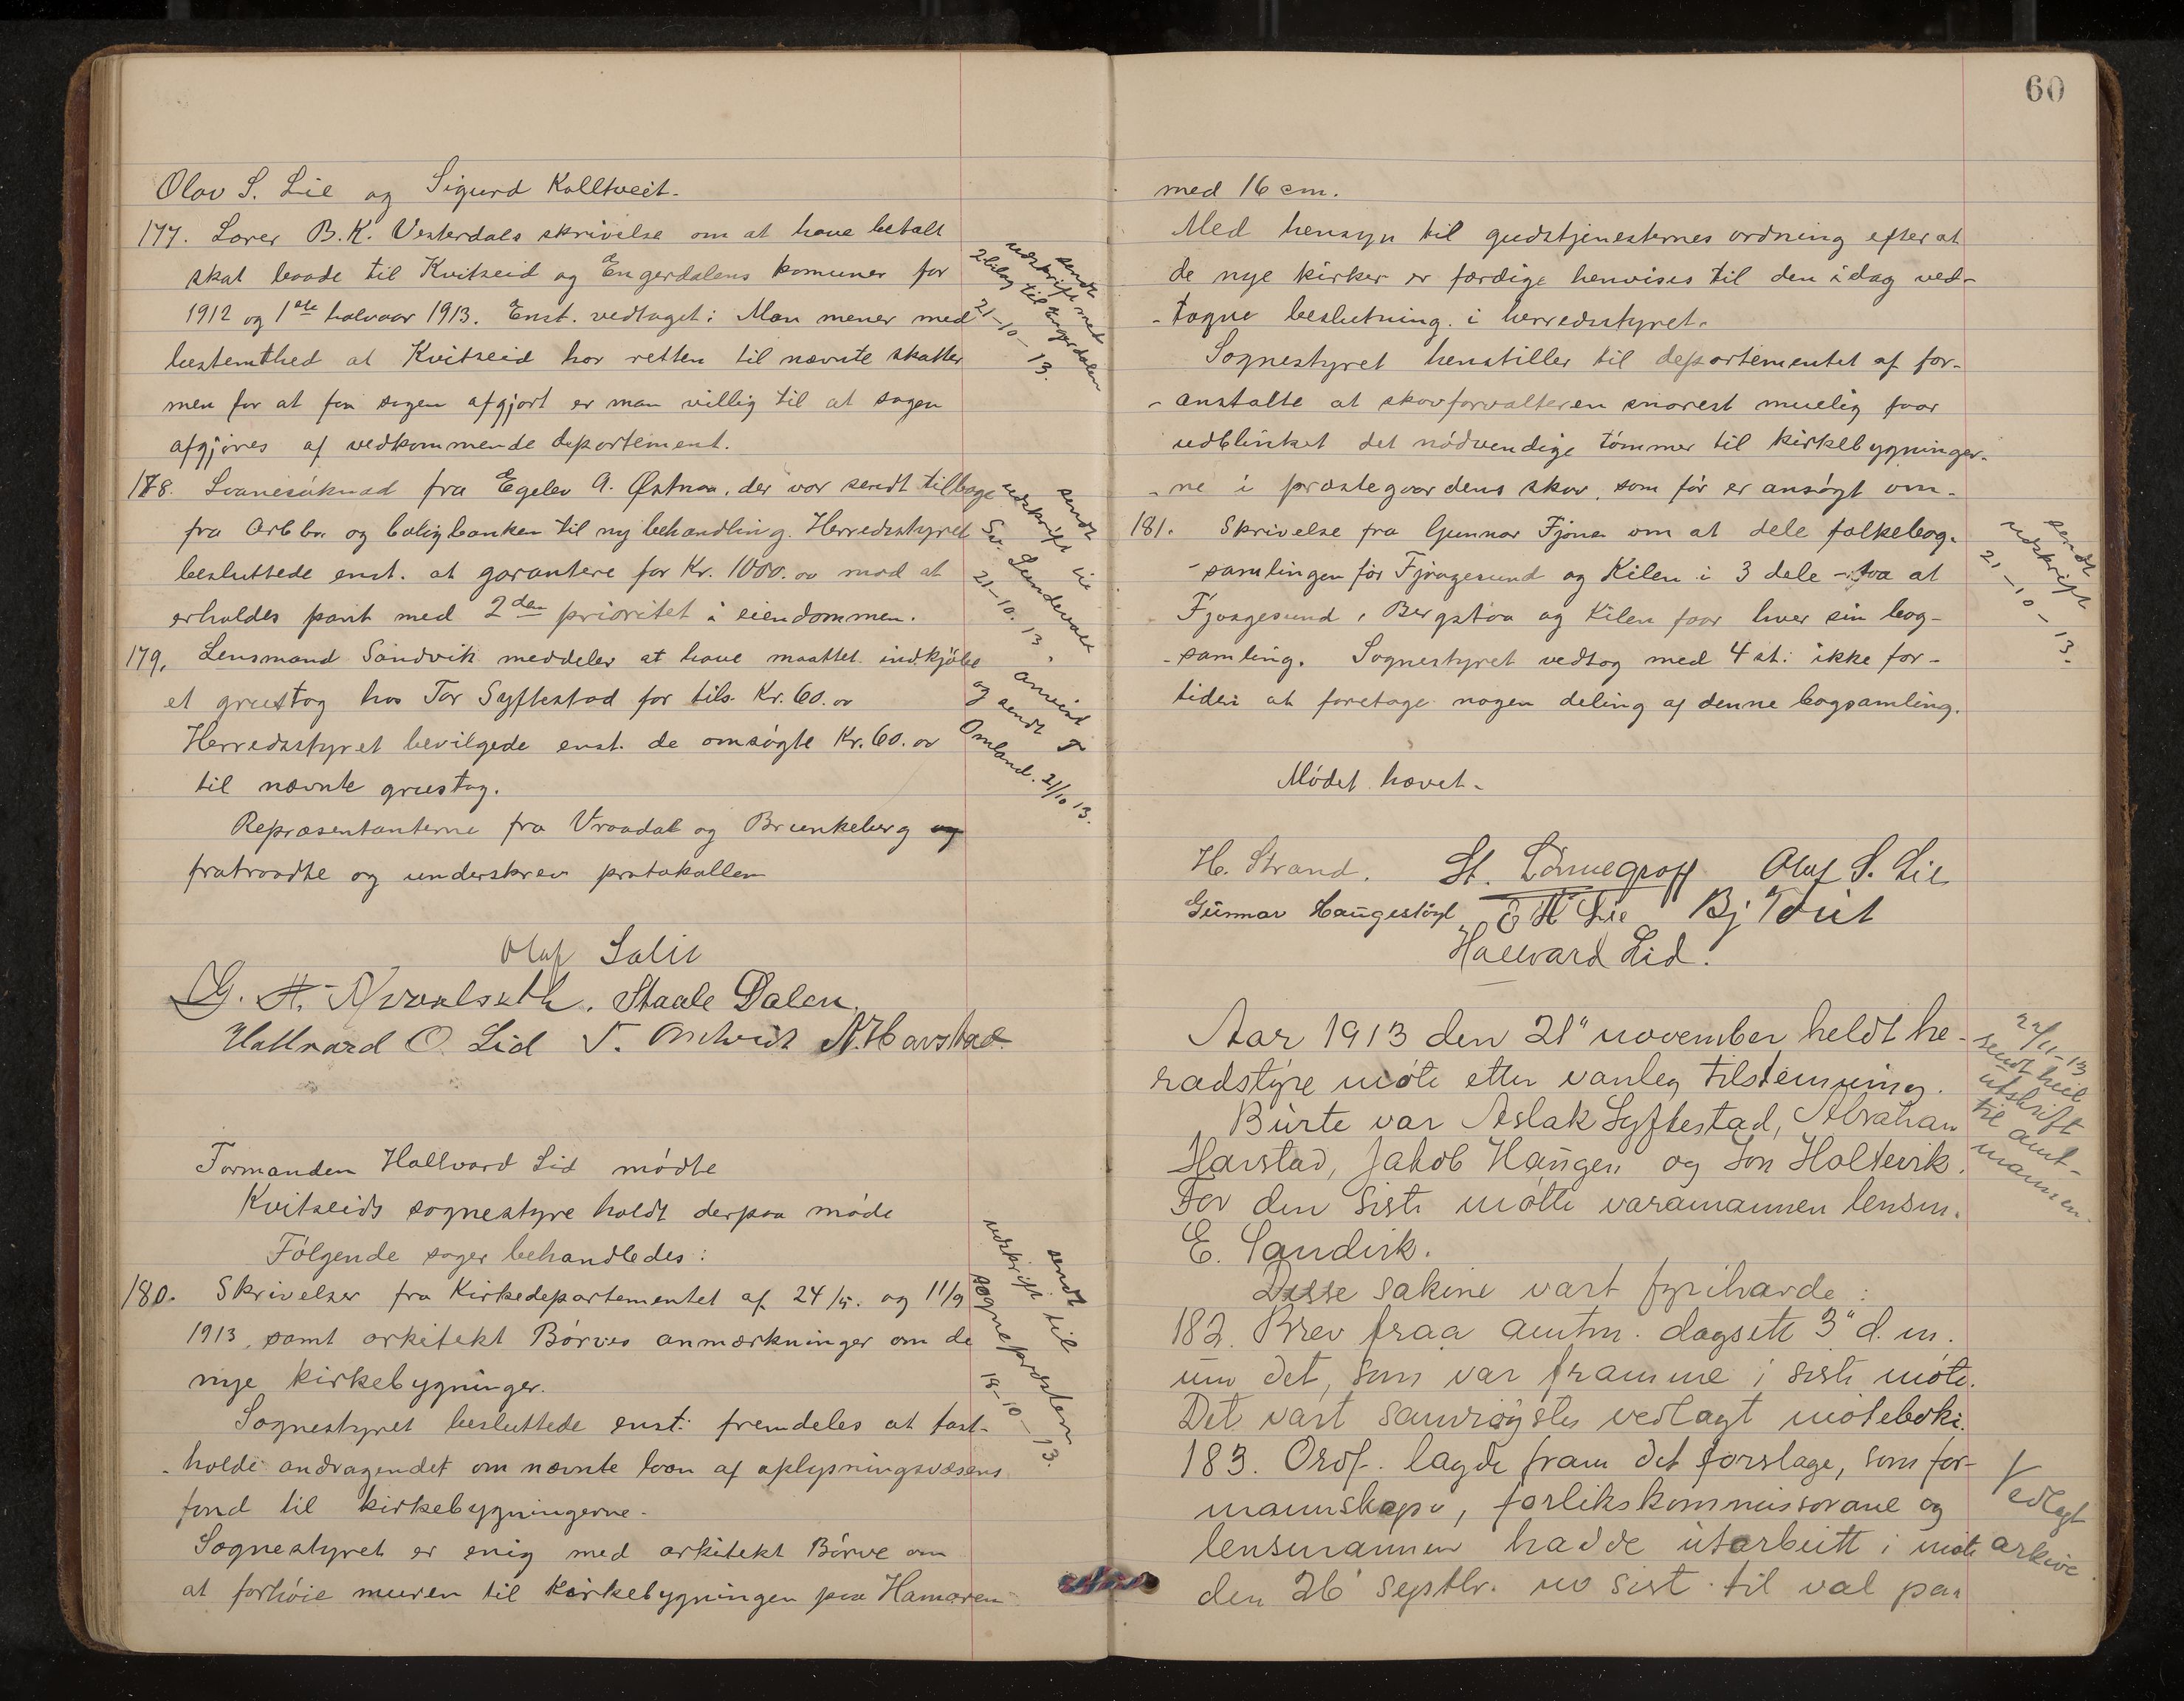 Olav S. Lie og Sigurd Kolltveit.
177. Lærer B. K. Vesterdals skrivelse om at have betalt
skat baade til Kvitseid og Engerdalens komuner for
1912 og 1ste halvaar 1913. Enst. vedtaget: Man mener med
bestemthed at Kvitseid har retten til nævnte skatter
men for at faa sagen afgjort er man villig til at sagen
afgjøres af vedkommende departement.
sendt
udskrift med
2 bilag til Engerdalen
21-10-13.
178. Laanesøknad fra Egelev A. Østnaa, der var sendt tilbage
fra Arb br. og boligbanken til ny behandling. Herredsstyret
besluttede enst. at garantere for Kr. 1000.00 mod at
erholdes pant med 2den prioritet i eiendommen.
sendt
udskrift til
Sv. Lundevall
21-10.13.
179. Lensmand Sandvik meddeler at have maattet indkjøbe
et grustag hos Tor Syftestad for tils. Kr. 60.00
Herredsstyret bevilgede enst. de omsøgte Kr. 60.00
til nævnte grustag.
anvist
og sendt T
Omland. 21/10 13.
Repræsentanterne fra Vraadal og Brunkeberg og
fratraadte og underskrev protokollen
Olaf Salit
G. H. Kvaalseth. Staale Dalen.
Hallvard O. Lid T. N. Havstad.
Formanden Hallvard Lid mødte
Kvitseids sognestyre holdt derpaa møde
Følgende sager behandledes:
180. Skrivelser fra Kirkedepartementet af 24/5. og 11/9
1913, samt arkitekt Børves anmærkninger om de
nye kirkebygninger.
Sognestyret besluttede enst: fremdeles at fast-
- holde andragendet om nævnte laan af oplysningsvæsens
fond til kirkebygningerne.
Sognestyret er enig med arkitekt Børve om
at forhøie muren til kirkebygningen paa Hamaren
sendt
udskrift til
sogneprosten
18-10-13.
60
med 16 cm.
Med hensyn til gudstjenesternes ordning efter at
de nye kirker er færdige henvises til den idag ved-
- tagne beslutning i herredsstyret.
Sognestyret henstiller til departementet af for-
- anstalte at skovforvalteren snarest muelig faar
udblinket det nødvendige tømmer til kirkebygninger-
- ne i præstegaardens skov, som før er ansøgt om.
181. Skrivelse fra Gunnar Fjone om at dele folkebog-
- samlingen for Fjaagesund og Kilen i 3 dele - saa at
Fjaagesund, Bergstøa og Kilen faar hver sin bog-
- samling. Sognestyret vedtog med 4 st: ikke for-
tiden at foretage nogen deling af denne bogsamling.
sendt
udskrift
21-10-13.
Mødet hævet.
H. Strand. St. Lønnegraff Olaf S. Lie
Gunnar Haugestøyl Ø H Lie Bj Tveit
Hallvard Lid.
Aar 1913 den 21" november heldt he-
radstyre møte etter vanleg tilstemning.
Burte var Aslak Syftestad, Abraham
Havstad, Jakob Haugen og Jon Holtevik.
For den siste møtte varamannen lensm.
E. Sandvik.
22/11-13
sendt heil
utskrift
til amt-
mannen.
Desse sakine vart fyrihavde:
182. Brev fraa amtm. dagsett 3" d. m.
um det, som var framme i siste møte.
Det vart samrøystes vedlagt møteboki.
183. Ordf. lagde fram det forslage, som for-
mannskape, forlikskommissorane og
lensmannen hadde utarbeitt i møte
den 26' septbr. no sist til val paa
Vedlagt
arkive